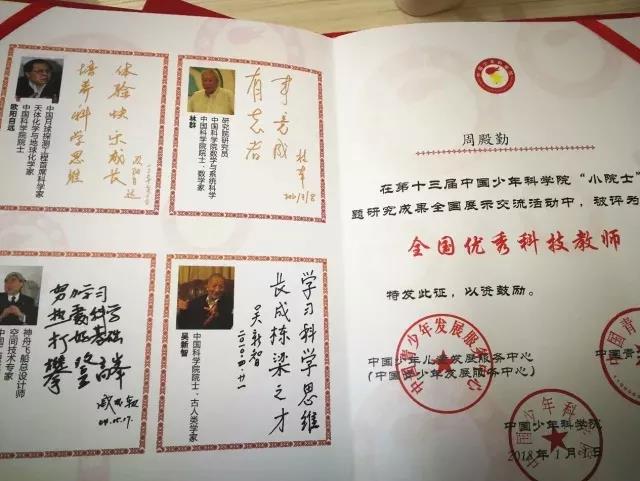 欧阳自远
中国科学院院士
天体化学与地球化学家
中国月球探测工程首席科学家
体验快乐成长
培养科学思维
林群
中国科学院院士、数学家
中国科学院数学与系统科学
研究院研究员
有志者
事竟成
林群
空间技术专家
神舟飞船总设计师
努力学习
热爱科学
打好基础
攀登高峰
戚发轫
吴新智
中国科学院院士、古人类学家
学习科学思维
长成栋梁之才
吴新智
二〇一〇·四·廿一
周殿勤
在第十三届中国少年科学院“小院士”
题研究成果全国展示交流活动中，被评为
全国优秀科技教师
特发此证，以资鼓励。
中国青少年发展服务中心
中国少年儿童发展服务中心
(中国青少年发展服务中心)
中国青
中国少年科学院
中国少年科学院
2018年1月